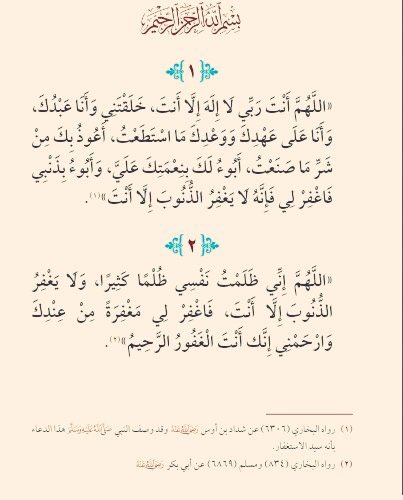 بِسْمِ اللَّهِ الرَّحْمَنِ الرَّحِيمِ
١
«اللَّهُمَّ أَنْتَ رَبِّي لَا إِلَهَ إِلَّا أَنتَ، خَلَقْتَنِي وَأَنَا عَبْدُكَ،
وَأَنَا عَلَى عَهْدِكَ وَوَعْدِكَ مَا اسْتَطَعْتُ، أَعُوذُ بِكَ مِنْ
شَرِّ مَا صَنَعْتُ، أَبُوءُ لَكَ بِنِعْمَتِكَ عَلَيَّ، وَأَبُوءُ بِذَنْبِي
فَاغْفِرْ لِي فَإِنَّهُ لَا يَغْفِرُ الذُّنُوبَ إِلَّا أَنْتَ»(١).
٢
«اللَّهُمَّ إِنِّي ظَلَمْتُ نَفْسِي ظُلْمًا كَثِيرًا، وَلَا يَغْفِرُ
الذُّنُوبَ إِلَّا أَنْتَ، فَاغْفِرْ لِي مَغْفِرَةً مِنْ عِنْدِكَ
وَارْحَمْنِي إِنَّك أَنْتَ الْغَفُورُ الرَّحِيمُ»(٢).
(١) رواه البخاري (٦٣٠٦) عن شداد بن أوس رَضِيَ اللَّهُ عَنْهُ وقد وصف النبي صَلَّى اللَّهُ عَلَيْهِ وَسَلَّمَ هذا الدعاء
بأنه سيد الاستغفار.
(٢) رواه البخاري (٨٣٤) ومسلم (٦٨٦٩) عن أبي بكر رَضِيَ اللَّهُ عَنْهُ